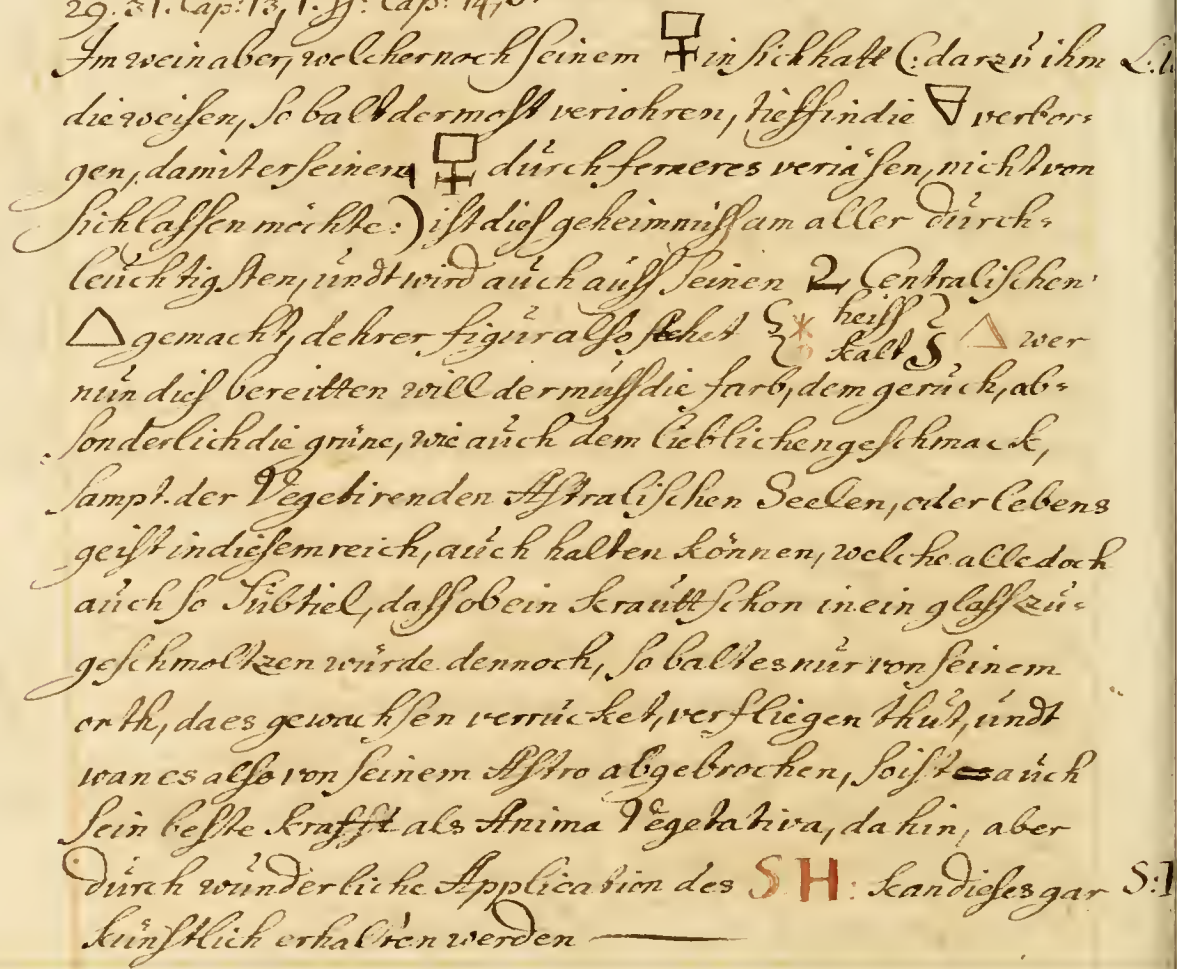 29. 31. Cap: 13, 1. ff: Cap: 14, 6.
Im wein aber, welcher noch seinem 🜿 in sich hatt (: darzu ihm
die weisen, so balt der most veriohren, tieff in die 🜃 verbor=
gen, damit er seinem 🜿 durch ferneres veriäsen, nicht von
sich lassen möchte :) ist dies geheimnüss am aller durch=
leuchtigsten, undt wird auch auss seinen 2, Centralischen
🜂 gemacht, dehrer figur also stehet { * heiss } 🜂 wer
kalt
nun dies bereitten will der muss die farb, dem geruch, ab=
sonderlich die grüne, wie auch dem lieblichen geschmack,
sampt. der Vegetirenden Astralischen Seelen, oder lebens
geist in diesem reich, auch halten können, welche alle doch
auch so Subtiel, dass ob ein krautt schon in ein glass zu=
geschmoltzen würde dennoch, so balt es nur von seinem
orth, da es gewachsen verrücket, verfliegen thut, undt
wan es also von seinem Astro abgebrochen, so ist auch
sein beste krafft als Anima Vegetativa, dahin, aber
durch wunderliche Application des S H: kan dieses gar
künstlich erhalten werden